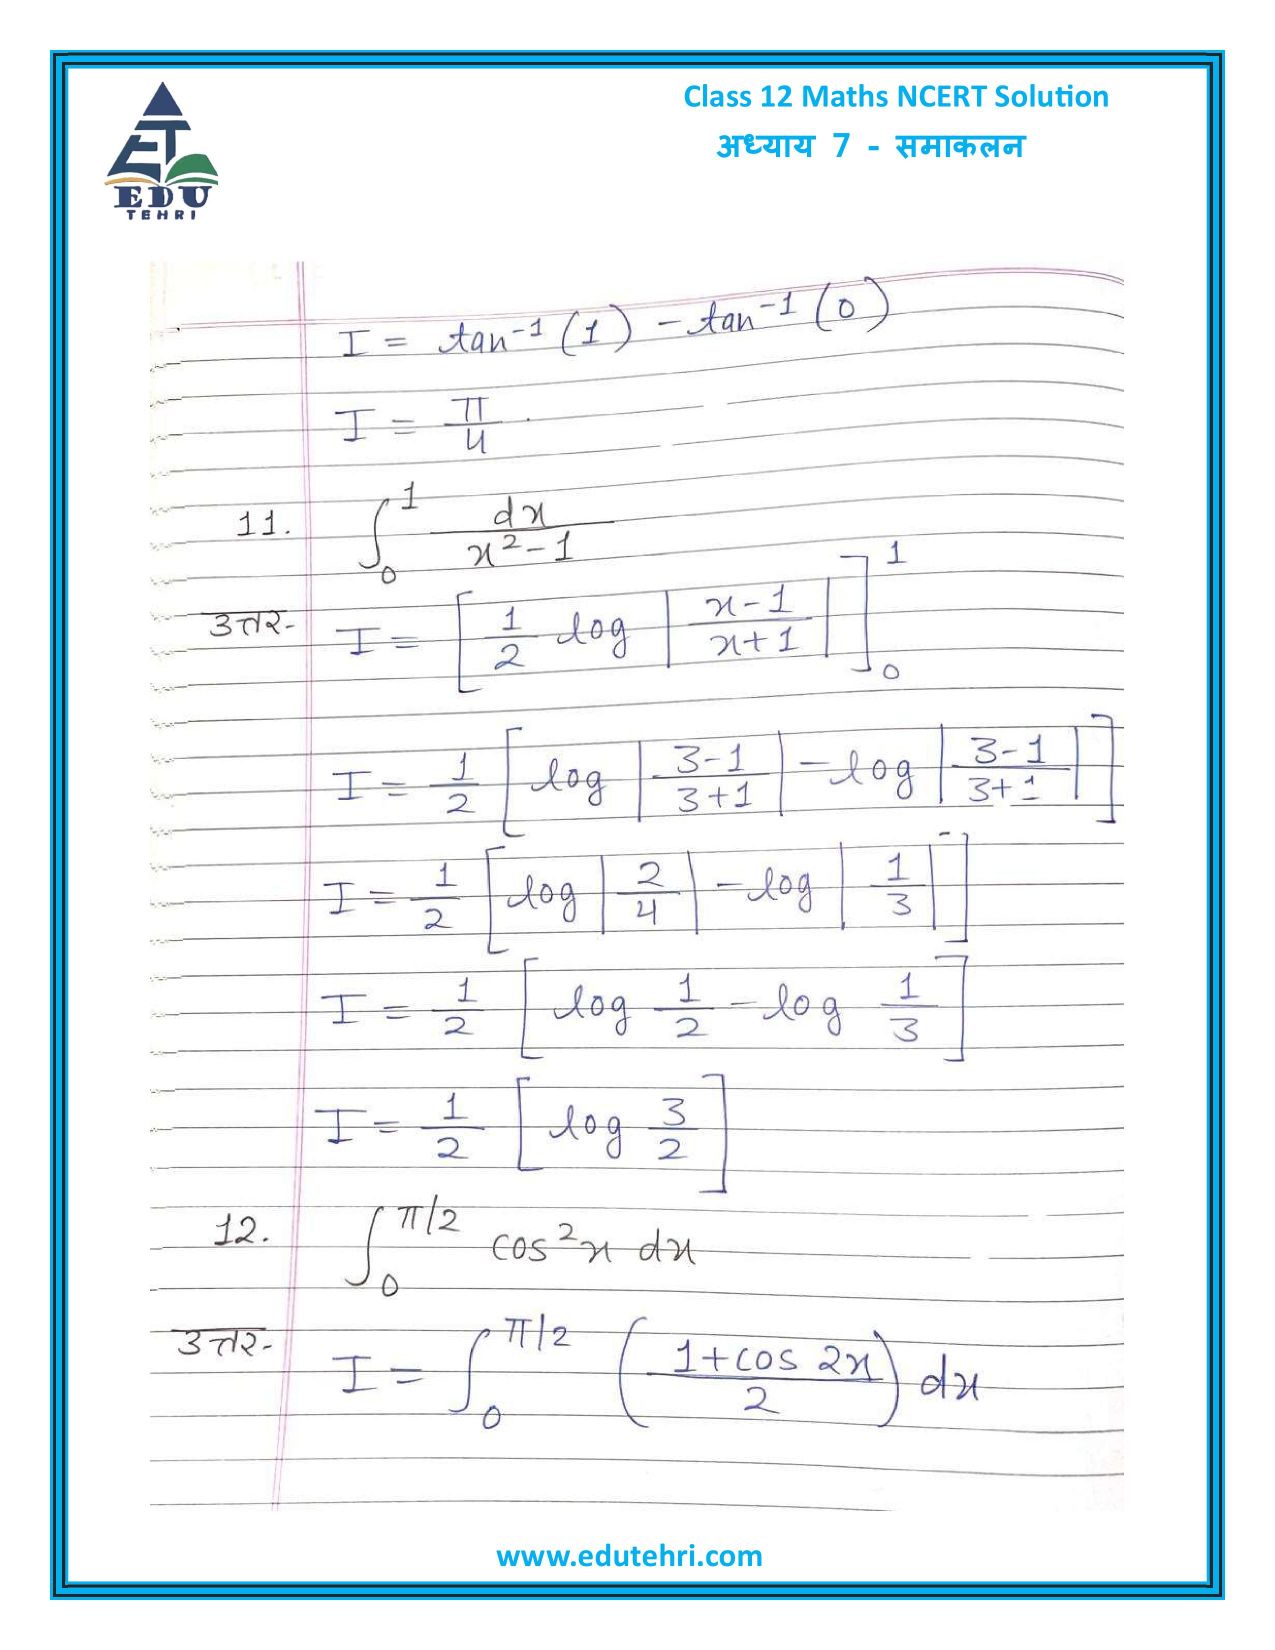 Class 12 Maths NCERT Solution
अध्याय 7 - समाकलन
EDU
TEHRI
I = tan⁻¹(1) - tan⁻¹(0)
I = π/4
11. ∫₀¹ dx/(x²-1)
उत्तर- I = [1/2 log |(x-1)/(x+1)|]₀¹
I = 1/2 [log |(3-1)/(3+1)| - log |(3-1)/(3+1)|]
I = 1/2 [log |2/4| - log |1/3|]
I = 1/2 [log 1/2 - log 1/3]
I = 1/2 [log 3/2]
12. ∫₀^π/2 cos²x dx
उत्तर- I = ∫₀^π/2 ((1+cos 2x)/2) dx
www.edutehri.com